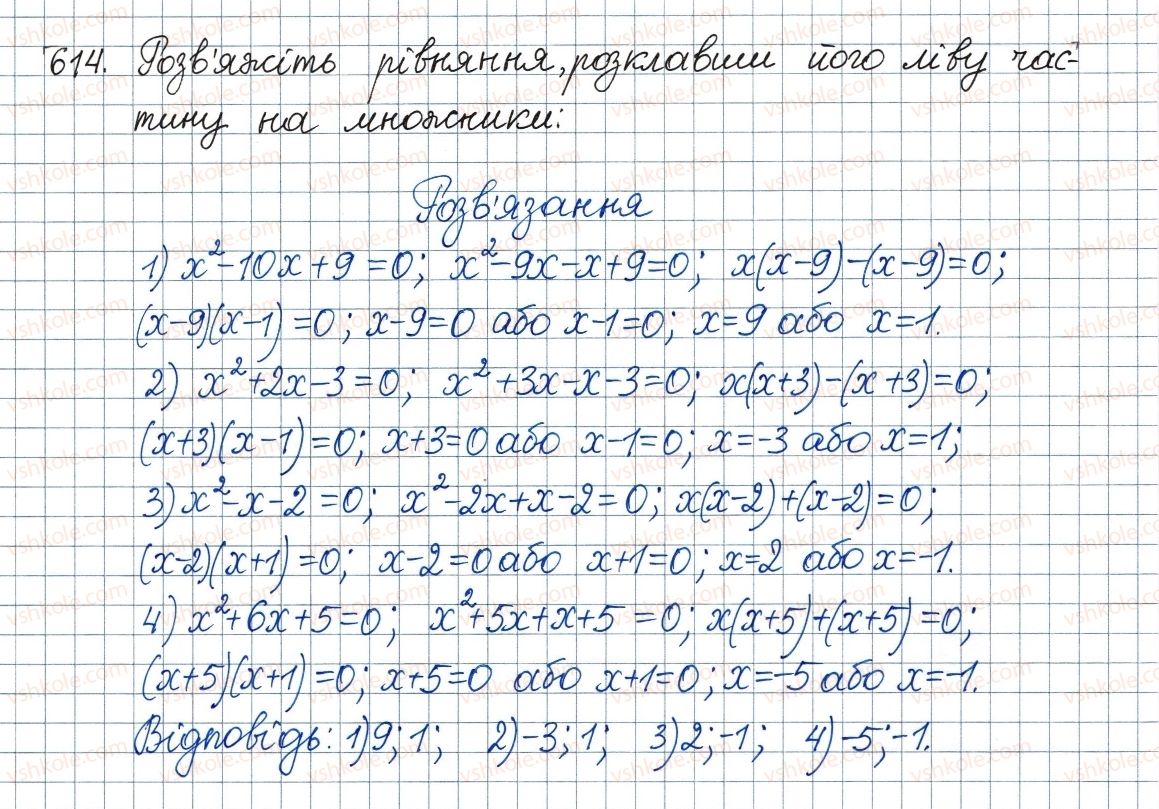 614. Розв'яжіть рівняння, розклавши його ліву час-
тину на множники:
Розв'язання
1) x²-10x+9=0; x²-9x-x+9=0; x(x-9)-(x-9)=0;
(x-9)(x-1)=0; x-9=0 або x-1=0; x=9 або x=1.
2) x²+2x-3=0; x²+3x-x-3=0; x(x+3)-(x+3)=0;
(x+3)(x-1)=0; x+3=0 або x-1=0; x=-3 або x=1;
3) x²-x-2=0; x²-2x+x-2=0; x(x-2)+(x-2)=0;
(x-2)(x+1)=0; x-2=0 або x+1=0; x=2 або x=-1.
4) x²+6x+5=0; x²+5x+x+5=0; x(x+5)+(x+5)=0;
(x+5)(x+1)=0; x+5=0 або x+1=0; x=-5 або x=-1.
Відповідь: 1) 9; 1; 2) -3; 1; 3) 2; -1; 4) -5; -1.
vshkole.com